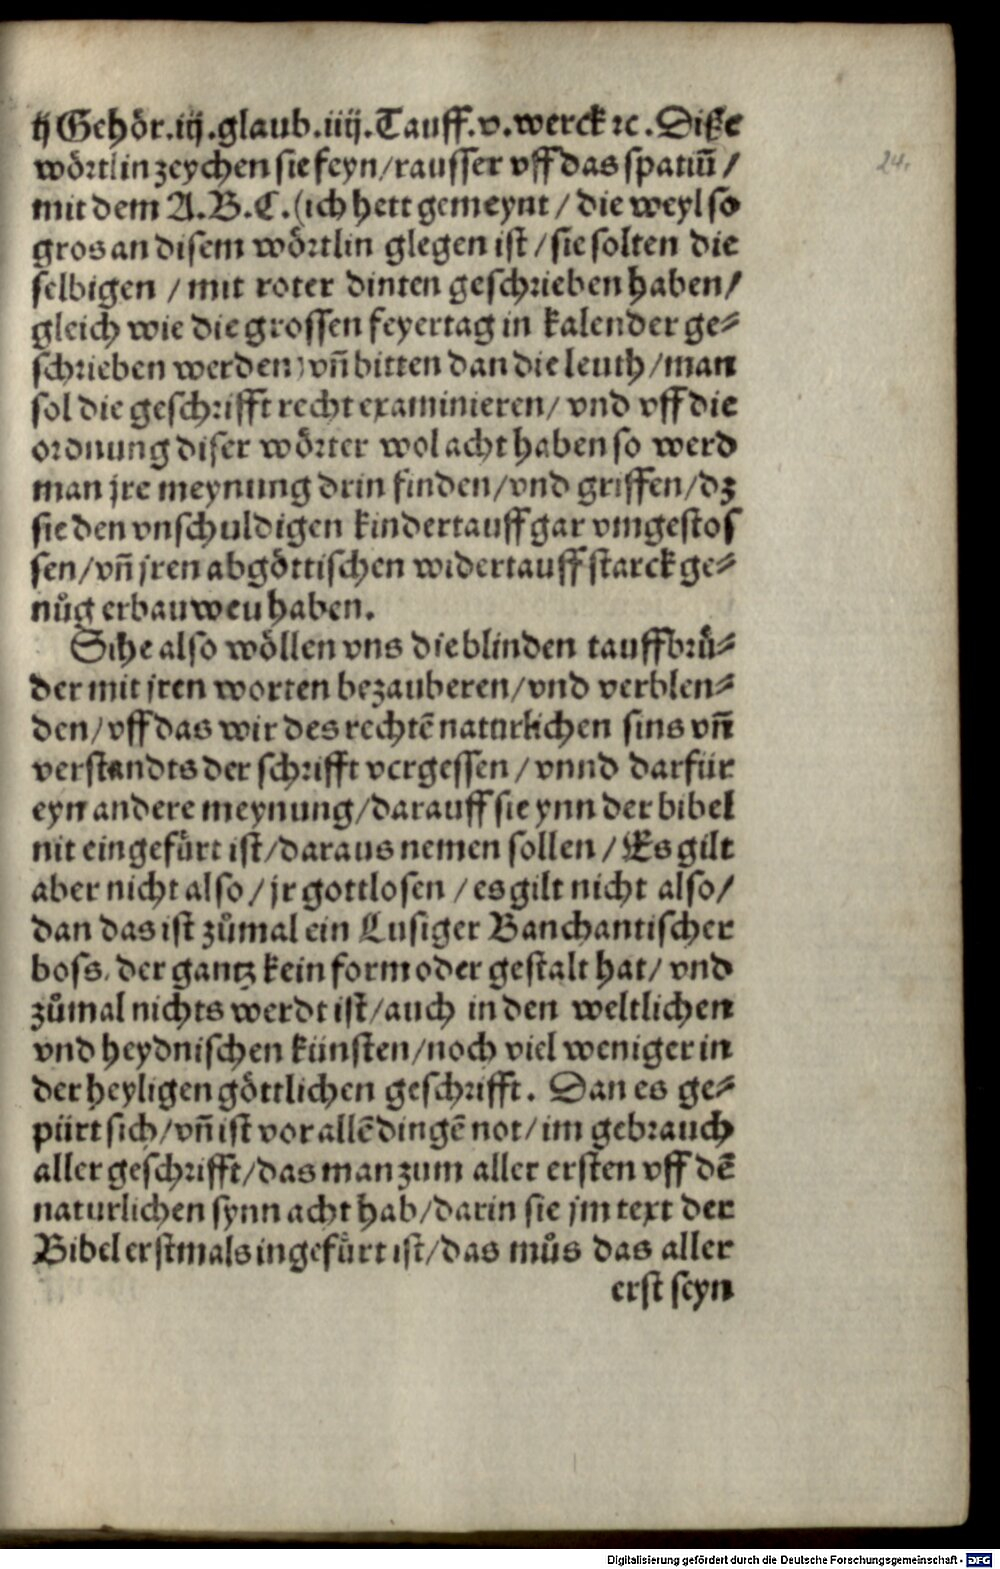 ij Gehör. iij. glaub. iiij. Tauff. v. werck ꝛc. Diße
wörtlin zeychen sie feyn / rausser vff das spatiū /
mit dem A. B. C. (ich hett gemeynt / die weyl so
gros an disem wörtlin glegen ist / sie solten die
selbigen / mit roter dinten geschrieben haben /
gleich wie die grossen feyertag in kalender ge⸗
schrieben werden) vñ bitten dan die leuth / man
sol die geschrifft recht examinieren / vnd vff die
ordnung diser wörter wol acht haben so werd
man jre meynung drin finden / vnd griffen / dz
sie den vnschuldigen kindertauff gar vmgestos
sen / vñ jren abgöttischen widertauff starck ge⸗
nůg erbauweu haben.
Sihe also wöllen vns die blinden tauffbrů⸗
der mit jren worten bezauberen / vnd verblen⸗
den / vff das wir des rechtē naturlichen sins vñ
verstandts der schrifft vergessen / vnnd darfür
eyn andere meynung / darauff sie ynn der bibel
nit eingefůrt ist / daraus nemen sollen / Es gilt
aber nicht also / jr gottlosen / es gilt nicht also /
dan das ist zůmal ein Lusiger Banchantischer
boss, der gantz kein form oder gestalt hat / vnd
zůmal nichts werdt ist / auch in den weltlichen
vnd heydnischen künsten / noch viel weniger in
der heyligen göttlichen geschrifft. Dan es ge⸗
pürt sich / vñ ist vor allē dingē not / im gebrauch
aller geschrifft / das man zum aller ersten vff dē
naturlichen synn acht hab / darin sie jm text der
Bibel erstmals ingefůrt ist / das můs das aller
erst seyn
24.
Digitalisierung gefördert durch die Deutsche Forschungsgemeinschaft - DFG